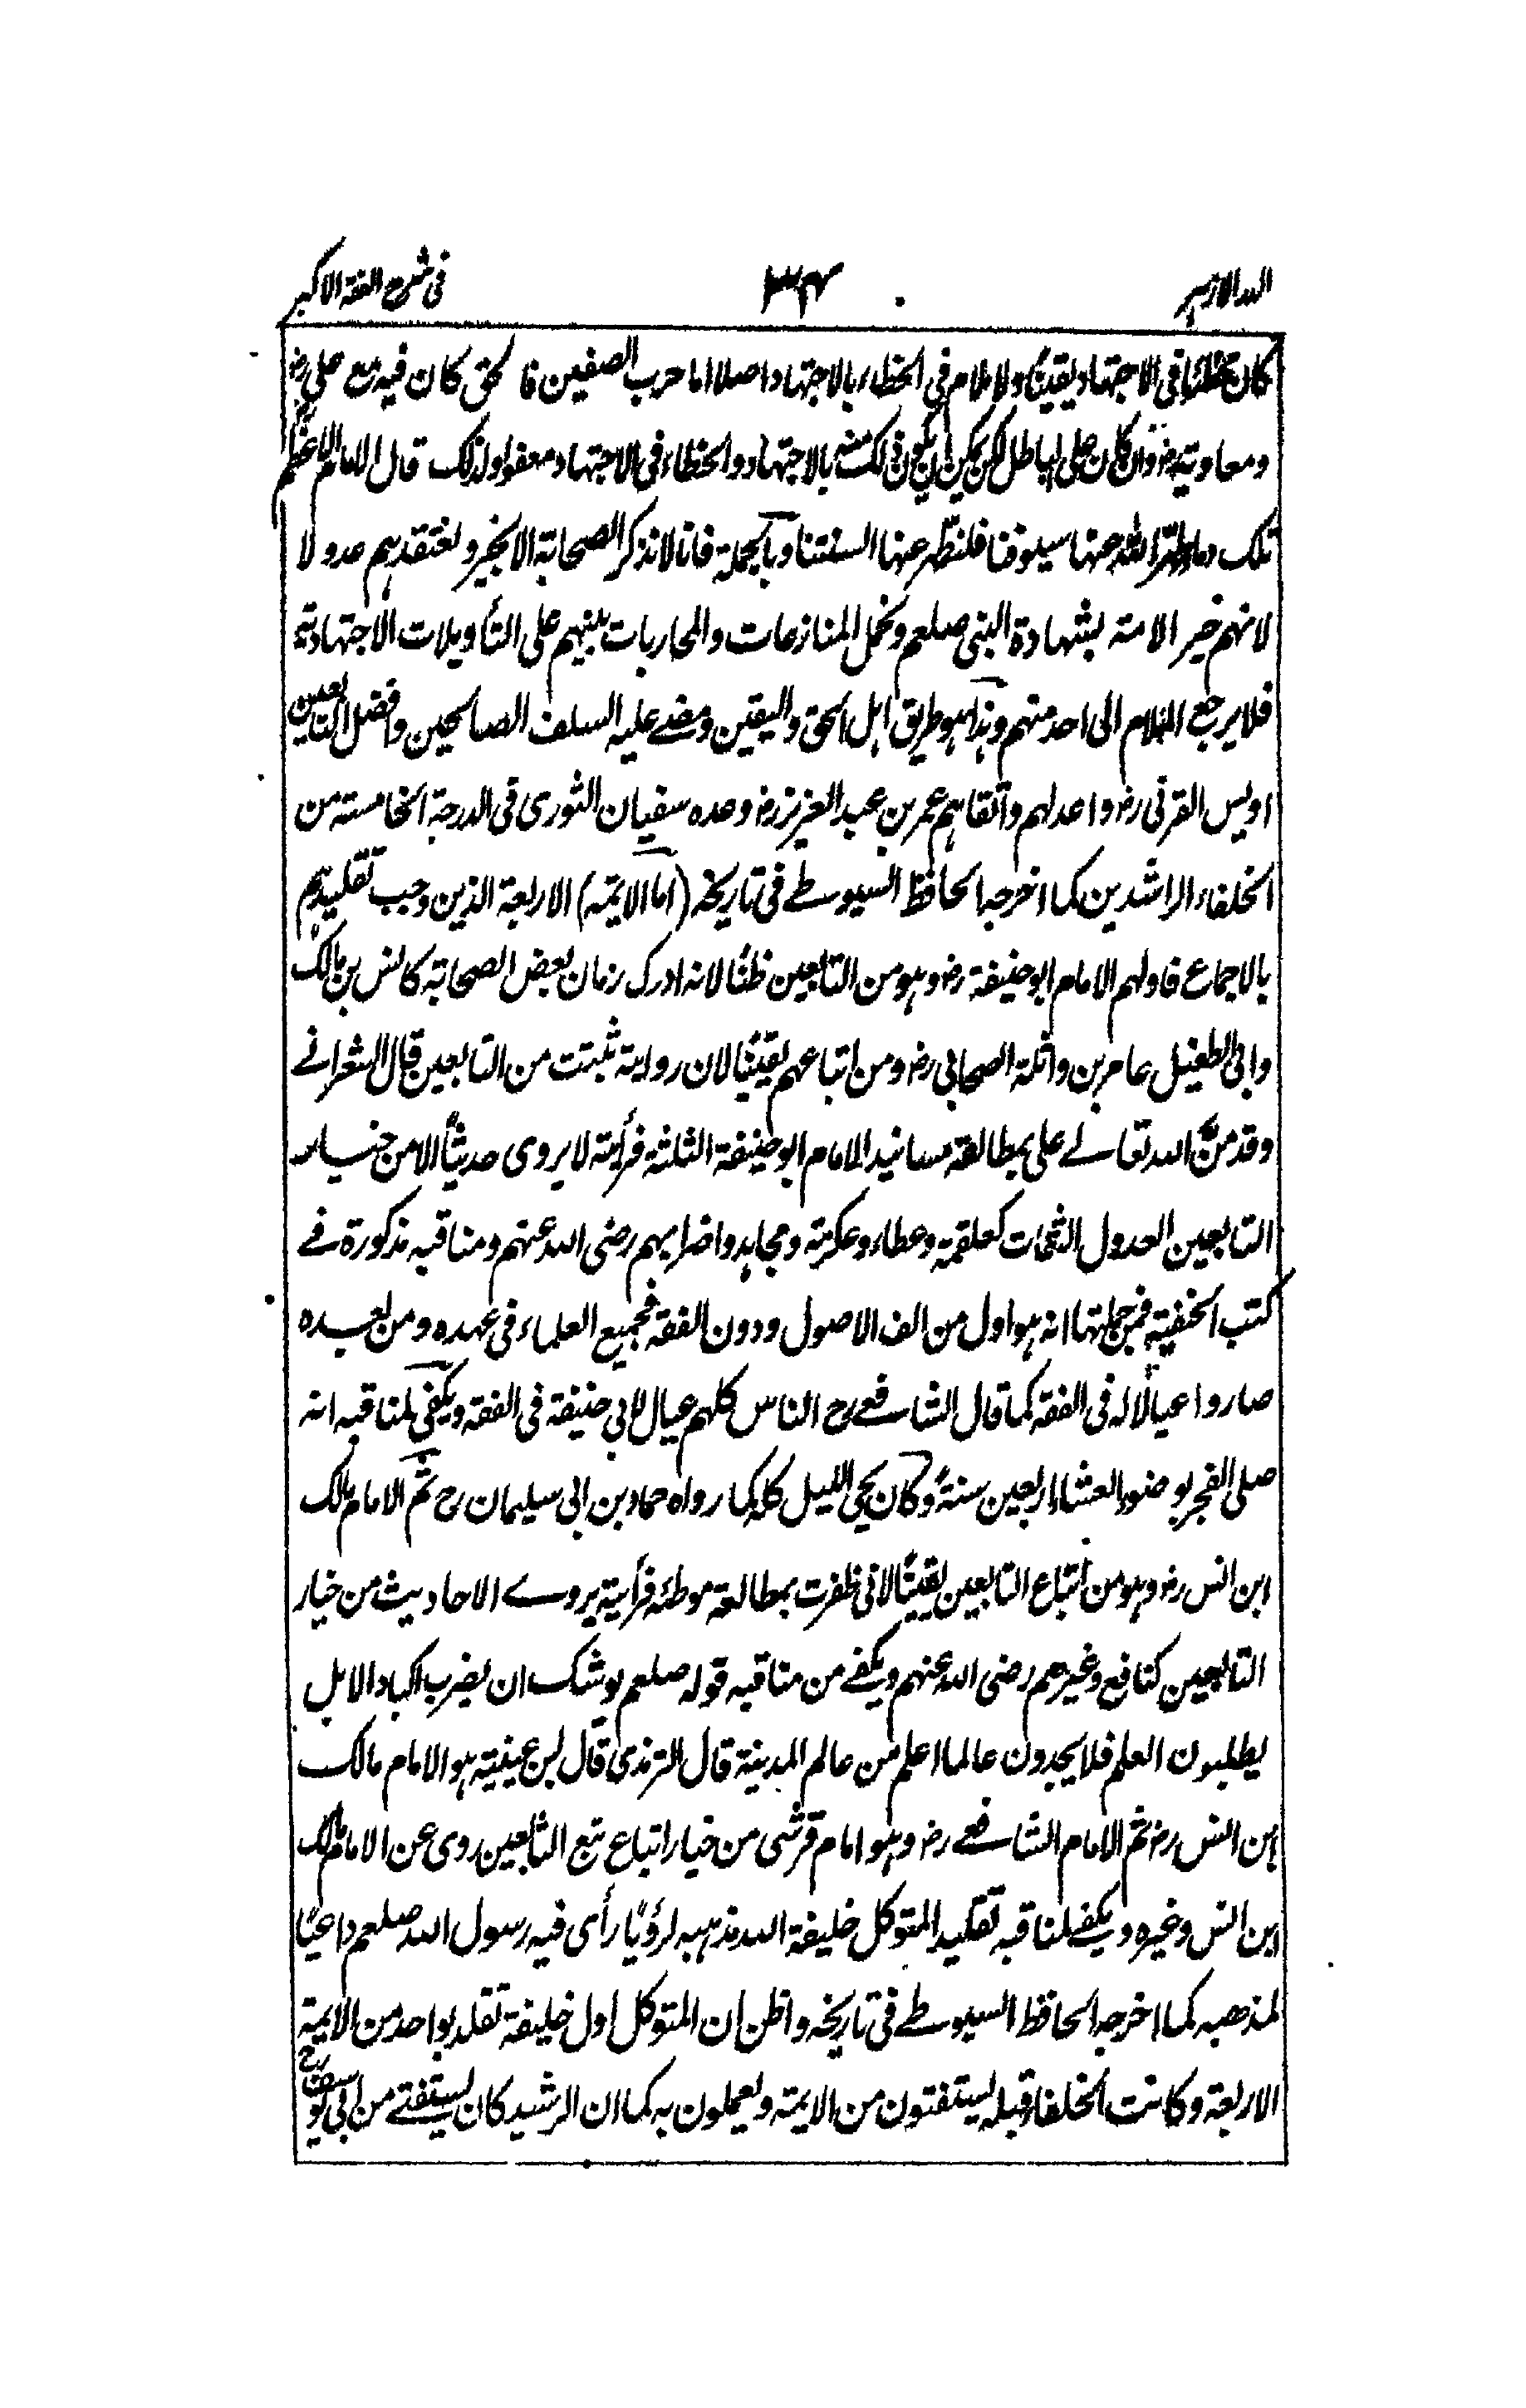 الدر الازہر ٣٤ فی شرح الفقہ الاکبر
کان مخطئا فی الاجتہاد یقینًا ولا ملام فی الخطاء بالاجتہاد اصلا اما حرب الصفین فالحق کان فیہ مع علی رضہ
ومعاویۃ رضہ وان کان علی الباطل لکن یمکن ان یکون ذلک منہ بالاجتہاد والخطاء فی الاجتہاد معفو ولذلک قال الامام الاعظم
تلک دماء طہر اللہ عنہا سیوفنا فلنطہر عنہا السنتنا وبالجملۃ فانا لا نذکر الصحابۃ الا بخیر ونعتقدہم عدولا
لانہم خیر الامۃ بشہادۃ النبی صلعم ونحمل المنازعات والمحاربات بینہم علی التأویلات الاجتہادیۃ
فلا یرجع الملام الی احد منہم وہذا ہو طریق اہل الحق والیقین ومضے علیہ السلف الصالحین وافضل التابعین
اویس القرنی رضہ واعدلہم واتقاہم عمر بن عبد العزیز رضہ وعدہ سفیان الثوری فی الدرجۃ الخامسۃ من
الخلفاء الراشدین کما اخرجہ الحافظ السیوطے فی تاریخہ (اما الایمۃ) الاربعۃ الذین وجب تقلیدہم
بالاجماع فاولہم الامام ابو حنیفۃ رضہ وہو من التابعین ظنًا لانہ ادرک زمان بعض الصحابۃ کانس بن مالک
وابی الطفیل عامر بن واثلۃ الصحابی رضہ ومن اتباعہم یقینًا لان روایتہ ثبتت من التابعین قال الشعرانے
وقد منّ اللہ تعالے علی بمطالعۃ مسانید الامام ابو حنیفۃ الثلثۃ فرأیتہ لا یروی حدیثًا الا من خیار
التابعین العدول الثقات کعلقمۃ وعطاء وعکرمۃ ومجاہد واضرابہم رضی اللہ عنہم ومناقبہ مذکورۃ فے
کتب الحنفیۃ فمن جملتہا انہ ہو اول من الف الاصول ودون الفقہ فجمیع العلماء فی عہدہ ومن بعدہ
صاروا عیالًا لہ فی الفقہ کما قال الشافعے رح الناس کلہم عیال لابی حنیفۃ فی الفقہ ویکفی لمناقبہ انہ
صلی الفجر بوضوء العشاء اربعین سنۃً وکان یحی اللیل کلہ کما رواہ حماد بن ابی سیلمان رح ثم الامام مالک
ابن انس رضہ وہو من اتباع التابعین یقینًا لانی ظفرت بمطالعۃ موطئہ فرأیتہ یروے الاحادیث من خیار
التابعین کنافع وغیرھم رضی اللہ عنہم ویکفے من مناقبہ قولہ صلعم یوشک ان یضرب اکباد الابل
یطلبون العلم فلا یجدون عالما اعلم من عالم المدینۃ قال الترمذی قال ابن عیینۃ ہو الامام مالک
بن انس رضہ ثم الامام الشافعے رضہ وہو امام قرشی من خیار اتباع تبع التابعین روی عن الامام مالک
ابن انس وغیرہ ویکفے لمناقبہ تقلید المتوکل خلیفۃ اللہ مذہبہ لرؤیًا رأی فیہ رسول اللہ صلعم داعیًا
لمذھبہ کما اخرجہ الحافظ السیوطے فی تاریخہ واظن ان المتوکل اول خلیفۃ تقلد بواحد من الایمۃ
الاربعۃ وکانت الخلفاء قبلہ یستفتون من الایمۃ ویعملون بہ کما ان الرشید کان یستفتے من ابی یوسف رح